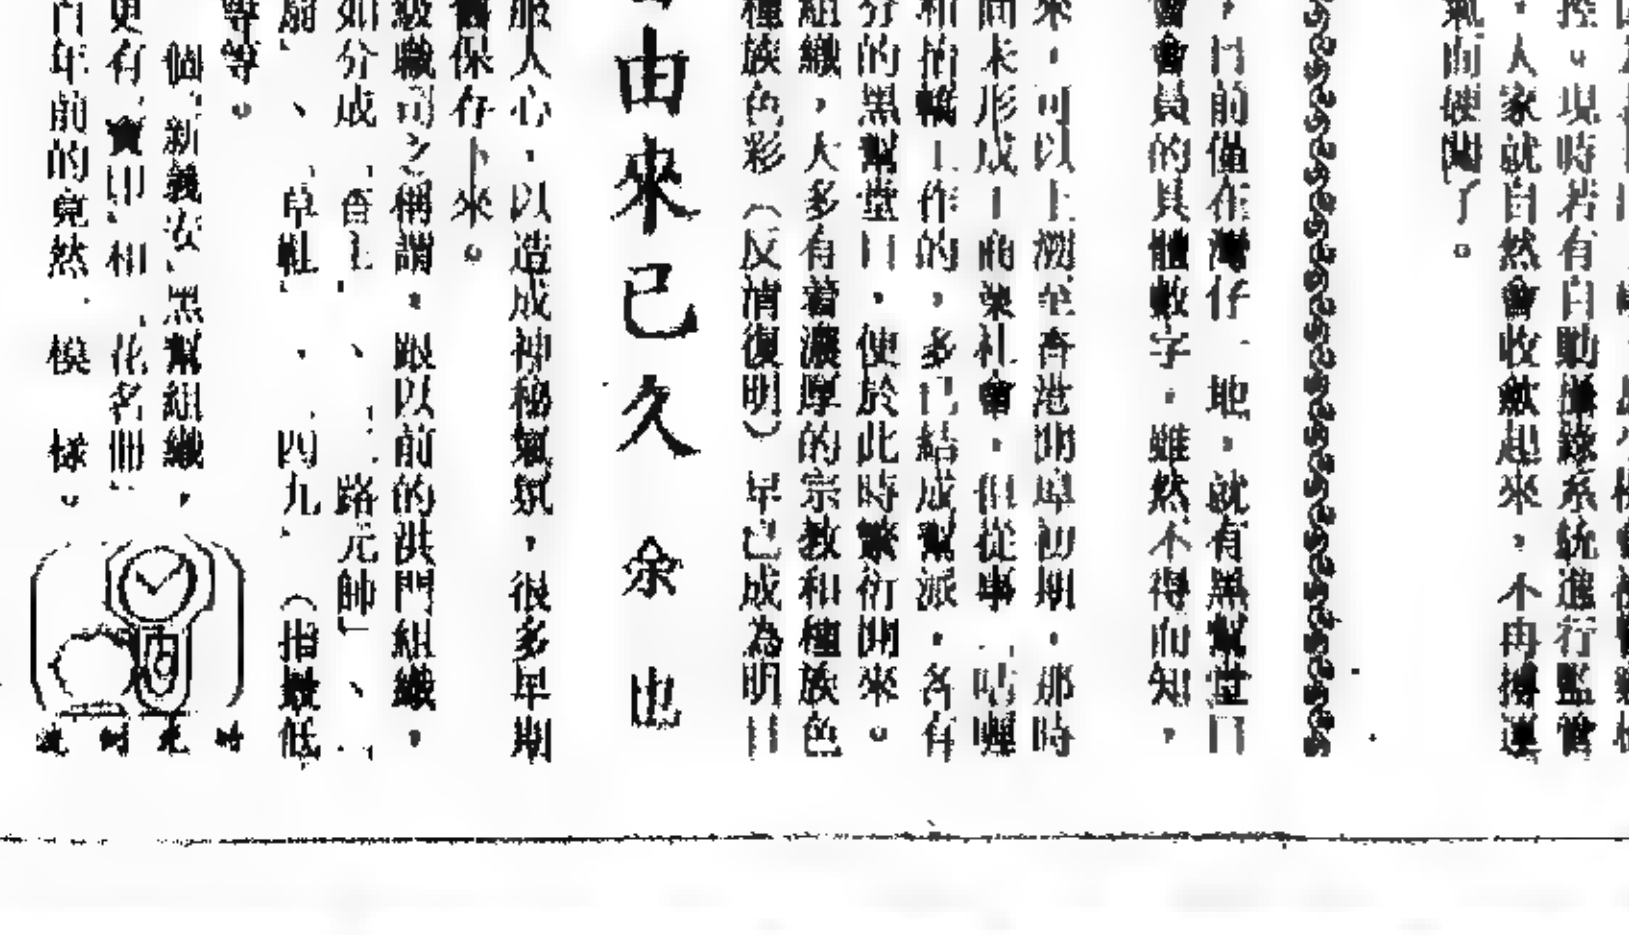 控。現時若有自動攝錄系統進行監管
，人家就自然會收歛起來，不再搏運
氣而硬闖了。
，目前僅在灣仔一地，就有黑幫堂口
會會員的具體數字，雖然不得而知，
來，可以上溯至香港開埠初期，那時
尚未形成工商業社會，但從事「咕喱
和拍轎工作的，多已結成幫派，各有
分的黑幫堂口，便於此時繁衍開來。
組織，大多有着濃厚的宗教和種族色
種族色彩（反清復明）早已成為明日
由來已久
余也
服人心，以造成神秘氣氛，很多早期
舊保存下來。
級職司之稱謂，跟以前的洪門組織，
如分成「香主」、「二路元帥」、「
扇」、「草鞋」、「四九」（指最低
等等。
個「新義安」黑幫組織，
更有「賣印」和「花名冊」
百年前的竟然一模一樣。